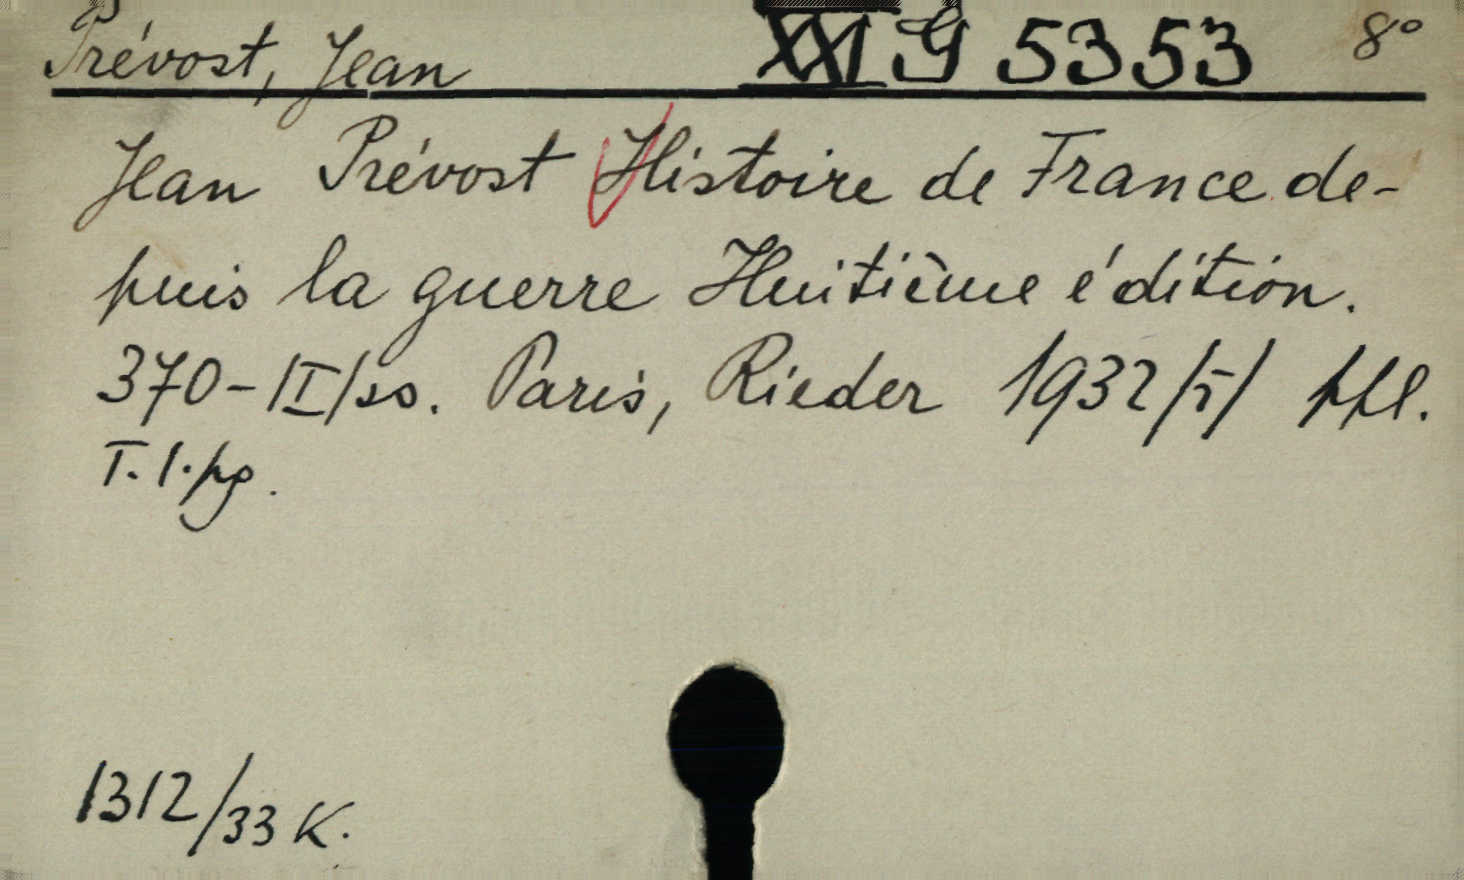 Prévost, Jean XXI G 5353 8°
Jean Prévost Histoire de France de-
puis la guerre Huitième édition.
370-/II/ss. Paris, Rieder 1932/5/ ppl.
T. 1. pg.
1312/33 K.